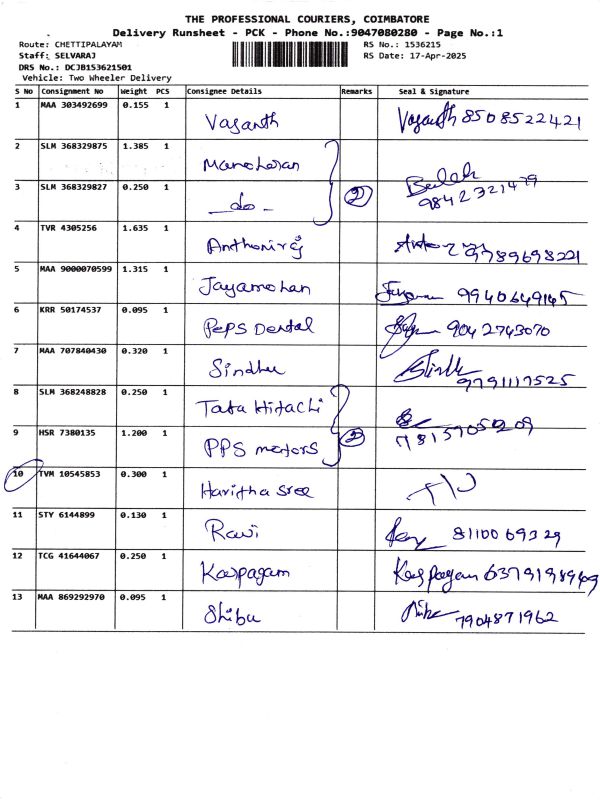 THE PROFESSIONAL COURIERS, COIMBATORE
Delivery Runsheet - PCK - Phone No.:9047080280 - Page No.:1
Route: CHETTIPALAYAM RS No.: 1536215
Staff: SELVARAJ RS Date: 17-Apr-2025
DRS No.: DCJB153621501
Vehicle: Two Wheeler Delivery
S No Consignment No Weight PCS Consignee Details Remarks Seal & Signature
1 MAA 303492699 0.155 1 Vasanth Vasanth 8508522421
2 SLM 368329875 1.385 1 Manoharan
3 SLM 368329827 0.250 1 -do- 2 9842321479
4 TVR 4305256 1.635 1 Anthoniraj 9789698221
5 MAA 9000070599 1.315 1 Jayamohan 9940649145
6 KRR 50174537 0.095 1 Peps Dental 9042743070
7 MAA 707840430 0.320 1 Sindhu 9791117525
8 SLM 368248828 0.250 1 Tata Hitachi
9 HSR 7380135 1.200 1 PPS motors 2
10 TVM 10545853 0.300 1 Haritha sree
11 STY 6144899 0.130 1 Ravi 8110069329
12 TCG 41644067 0.250 1 Kaspagam Kaspagam
13 MAA 869292970 0.095 1 Shibu 7904871962